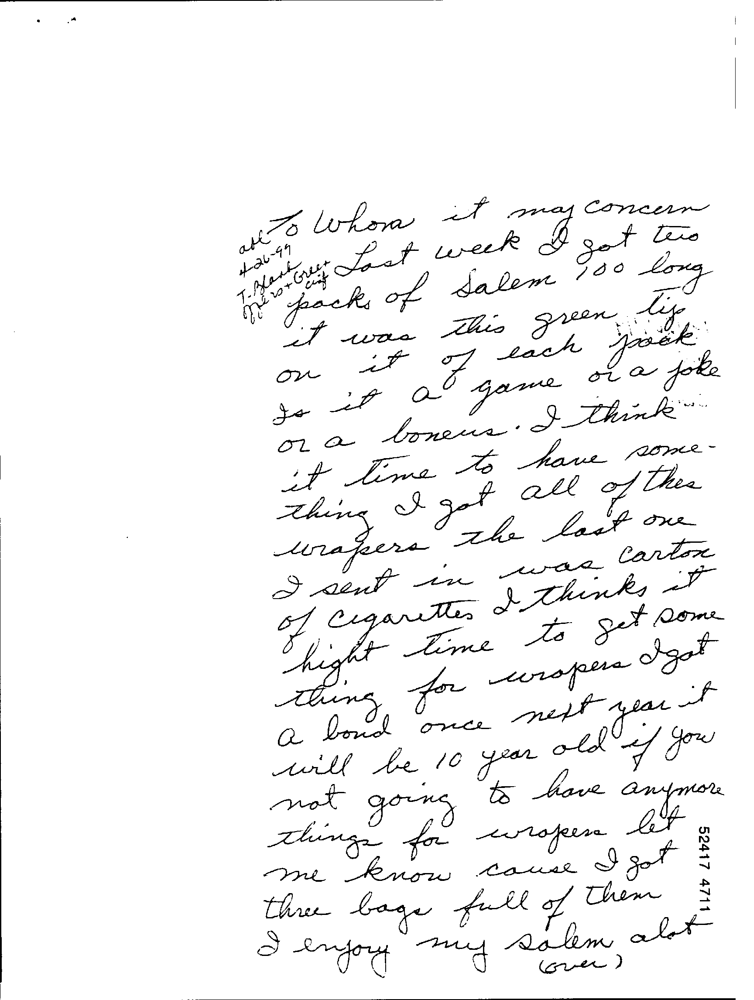 To Whom it may concern
4-26-99
Last week I got two
packs of Salem 100 long
it was this green tip
on it of each pack
Is it a game or a joke
or a boneus. I think
it time to have some-
thing I got all of thes
wrapers the last one
I sent in was carton
of cigarettes I thinks it
hight time to get some
thing for wrapers I got
a bond once next year it
will be 10 year old if you
not going to have anymore
things for wrapers let
me know cause I got
three bags full of them
I enjoy my salem alot
(over)
52417 4711